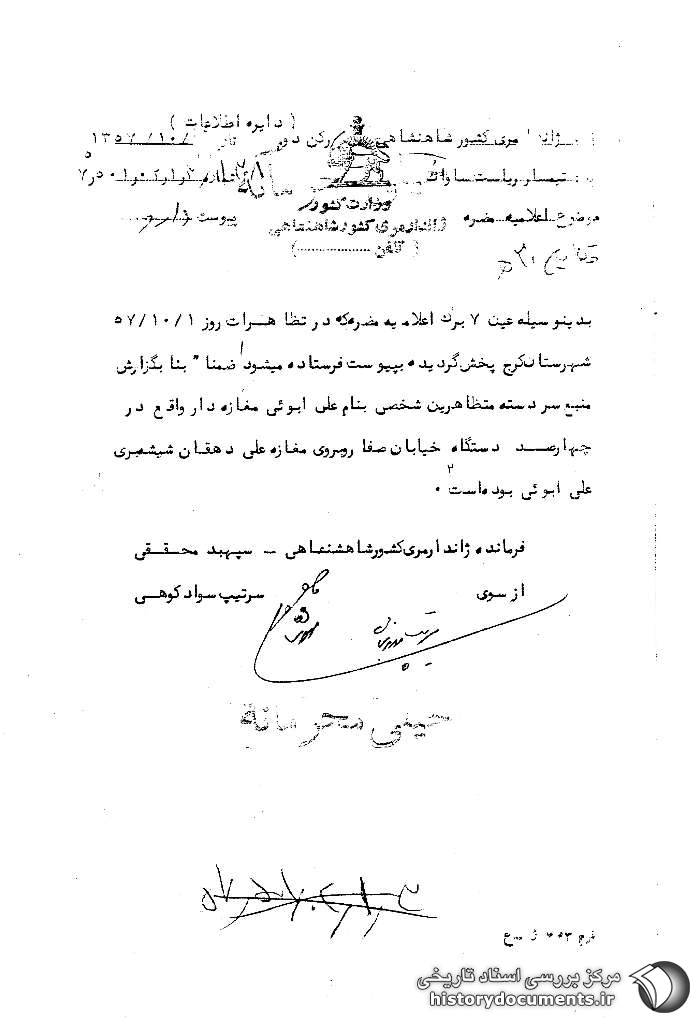 ( دایره اطلاعات )
از : ژاندارمری کشور شاهنشاهی رکن دو
۱۳۵۷/۱۰/
به : تیمسار ریاست ساواک
وزارت کشور
ژاندارمری کشور شاهنشاهی
( تلفن .................. )
موضوع اعلامیه مضره
پیوست دارد
بدینوسیله عین ۷ برگ اعلامیه مضره که در تظاهرات روز ۵۷/۱۰/۱
شهرستان کرج پخش گردیده بپیوست فرستاده میشود ضمنا" بنا بگزارش
منبع سر دسته متظاهرین شخصی بنام علی ابوئی مغازه دار واقع در
چهارصد دستگاه خیابان صفا روبروی مغازه علی دهقان شیشبری
علی ابوئی بوده است ۰
فرمانده ژاندارمری کشور شاهنشاهی – سپهبد محققی
از سوی سرتیپ سوادکوهی
خیلی محرمانه
فرم ۲۵۳ ژ – ع
مرکز بررسی اسناد تاریخی
historydocuments.ir